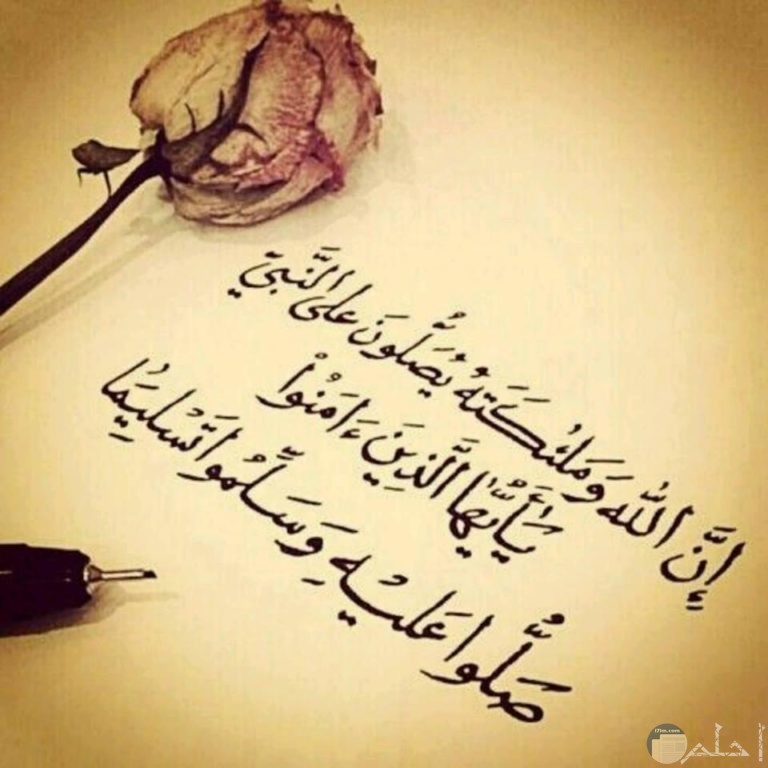 إِنَّ اللَّهَ وَمَلَٰئِكَتَهُ يُصَلُّونَ عَلَى النَّبِيِّ
يَٰأَيُّهَا الَّذِينَ ءَامَنُوْا
صَلُّوا عَلَيْهِ وَسَلِّمُوا تَسْلِيمًا
أحلم
i7lm.com